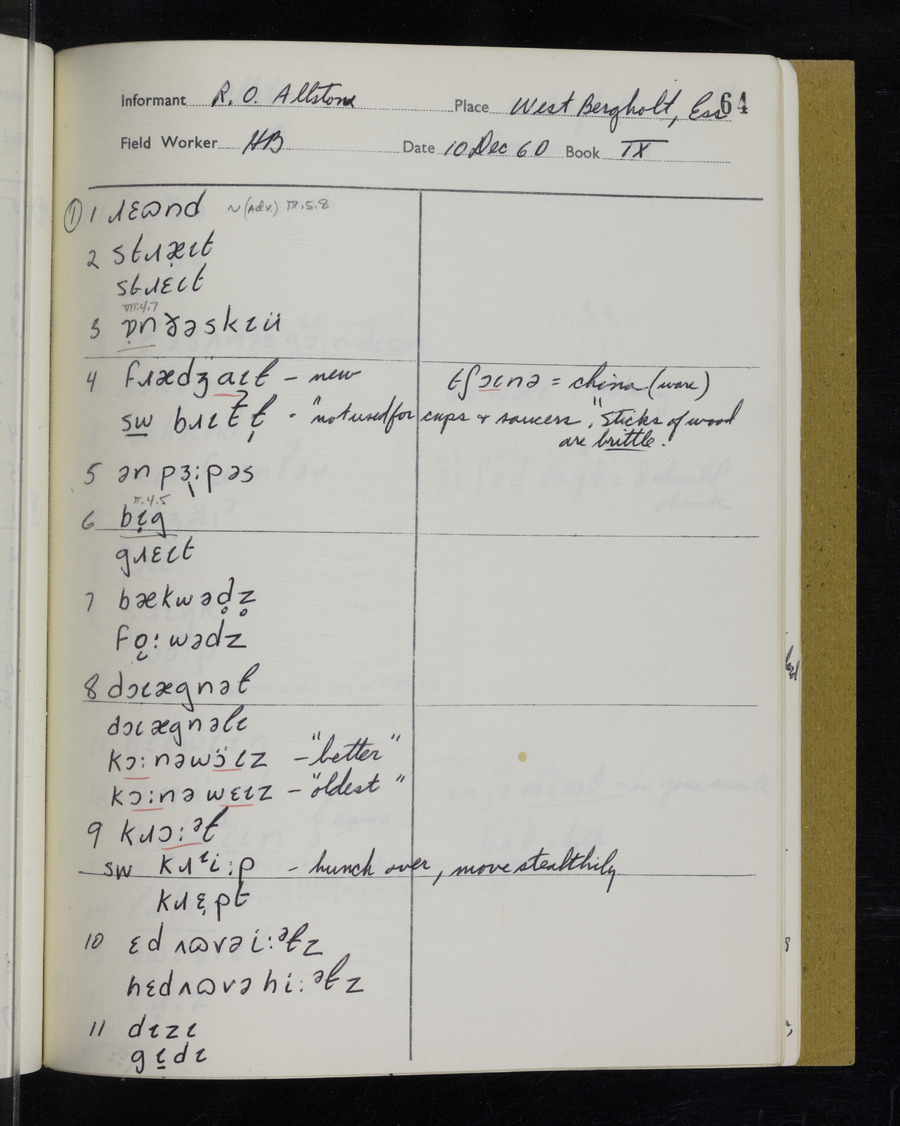 Informant R. O. Allstone Place West Bergholt, Ess 64
Field Worker HB Date 10 Dec 60 Book IX
① 1 ɹɛɷnd ~ (Adv.) IX.5.8
2 stɹæ̣ɩt
stɹɛɩt
VII.4.7
3 ɒ̣nðəskɩü
4 fɹædʒaɩɫ – new tʃɔɩnə = china (ware)
sw bɹɩtɫ̩ - "not used for cups & saucers." "Sticks of wood
are brittle.
5 ən pɜ:pəs
II.4.5
6 bɩ̣g
gɹɛɩt
7 bækwəd̥z̥
fo̜:wədz
8 dɔɩægnəɫ
dɔɩægnəlɩ
kɔ:nəwɔ̈ɩz – "better"
kɔ:nə wɛɩz – "oldest"
9 kɹɔ:ᵊɫ
sw kɹᶥi:p – hunch over, move stealthily
kɹɛ̣pt
10 ɛd ʌɷvə i:ᵊɫz
hɛdʌɷvə hi:ᵊɫz
11 dɩzɩ
gɩ̠dɩ